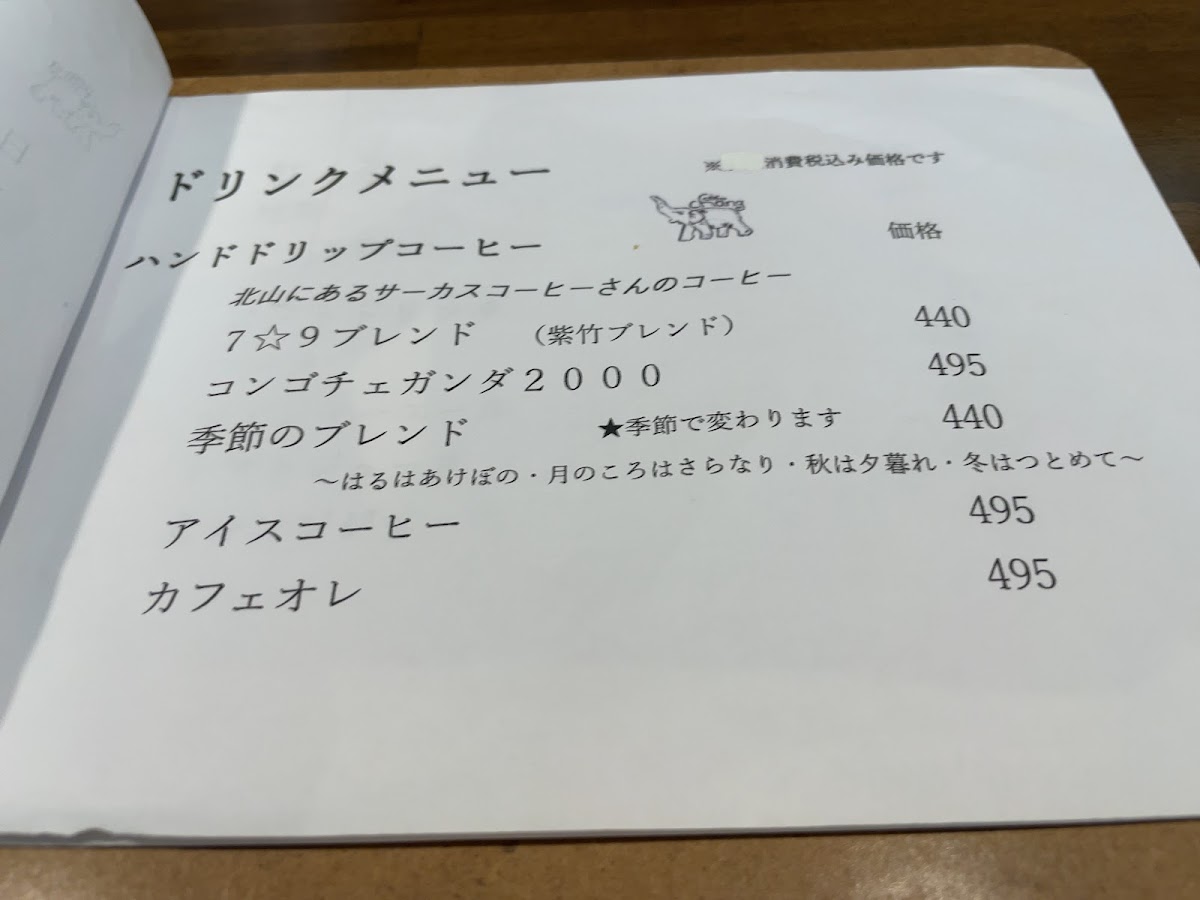 ドリンクメニュー
※ 消費税込み価格です
chang
価格
ハンドドリップコーヒー
北山にあるサーカスコーヒーさんのコーヒー
７☆９ブレンド （紫竹ブレンド） 440
コンゴチェガンダ２０００ 495
季節のブレンド ★季節で変わります 440
～はるはあけぼの・月のころはさらなり・秋は夕暮れ・冬はつとめて～
アイスコーヒー 495
カフェオレ 495
日